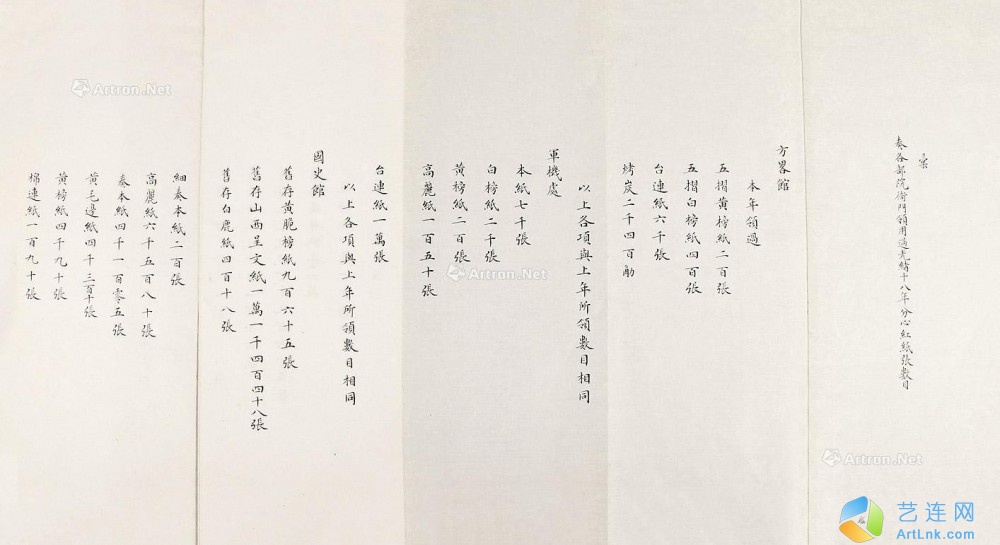 彙
奏各部院衙門領用過光緒十八年分心紅紙張數目
方畧館
本年領過
五摺黃榜紙二百張
五摺白榜紙四百張
台連紙六千張
烤炭二千四百觔
以上各項與上年所領數目相同
軍機處
本紙七千張
白榜紙二千張
黃榜紙二百張
高麗紙一百五十張
台連紙一萬張
以上各項與上年所領數目相同
國史館
舊存黃脆榜紙九百六十五張
舊存山西呈文紙一萬一千四百四十八張
舊存白鹿紙四百十八張
細奏本紙二百張
高麗紙六千五百八十張
奏本紙四千一百零五張
黃毛邊紙四千三百十張
黃榜紙四千九十張
棉連紙一百九十張
Artron.Net
Artron.Net
Artron.Net
艺连网
ArtLnk.com